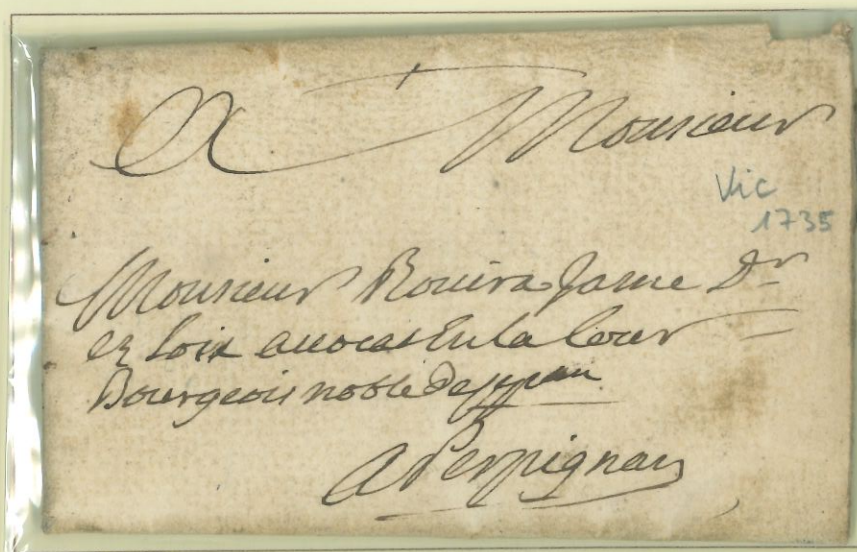 A Monsieur
Vic
1735
Monsieur Rouira Jaume Dr
ez Loix auocat En la Cour
Bourgeois noble de ppan
A Perpignan